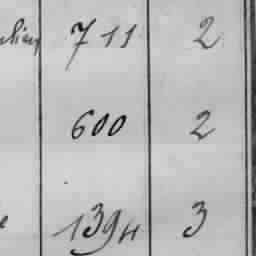 711 2
600 2
1394 3